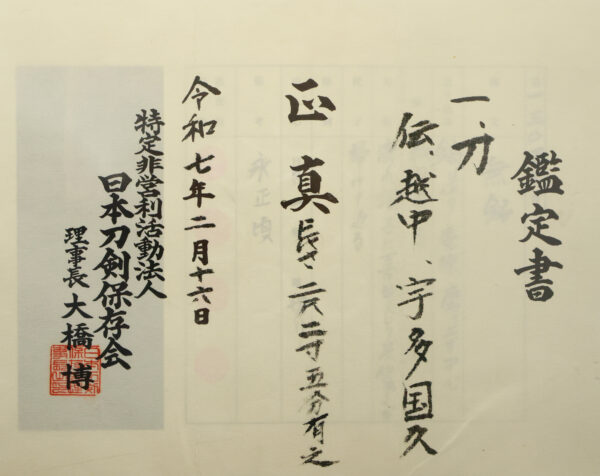 鑑定書
一、刀
伝、越中、宇多国久
正真
長サ二尺二寸五分有之
令和七年二月十六日
特定非営利活動法人
日本刀剣保存会
理事長 大橋 博
永正頃